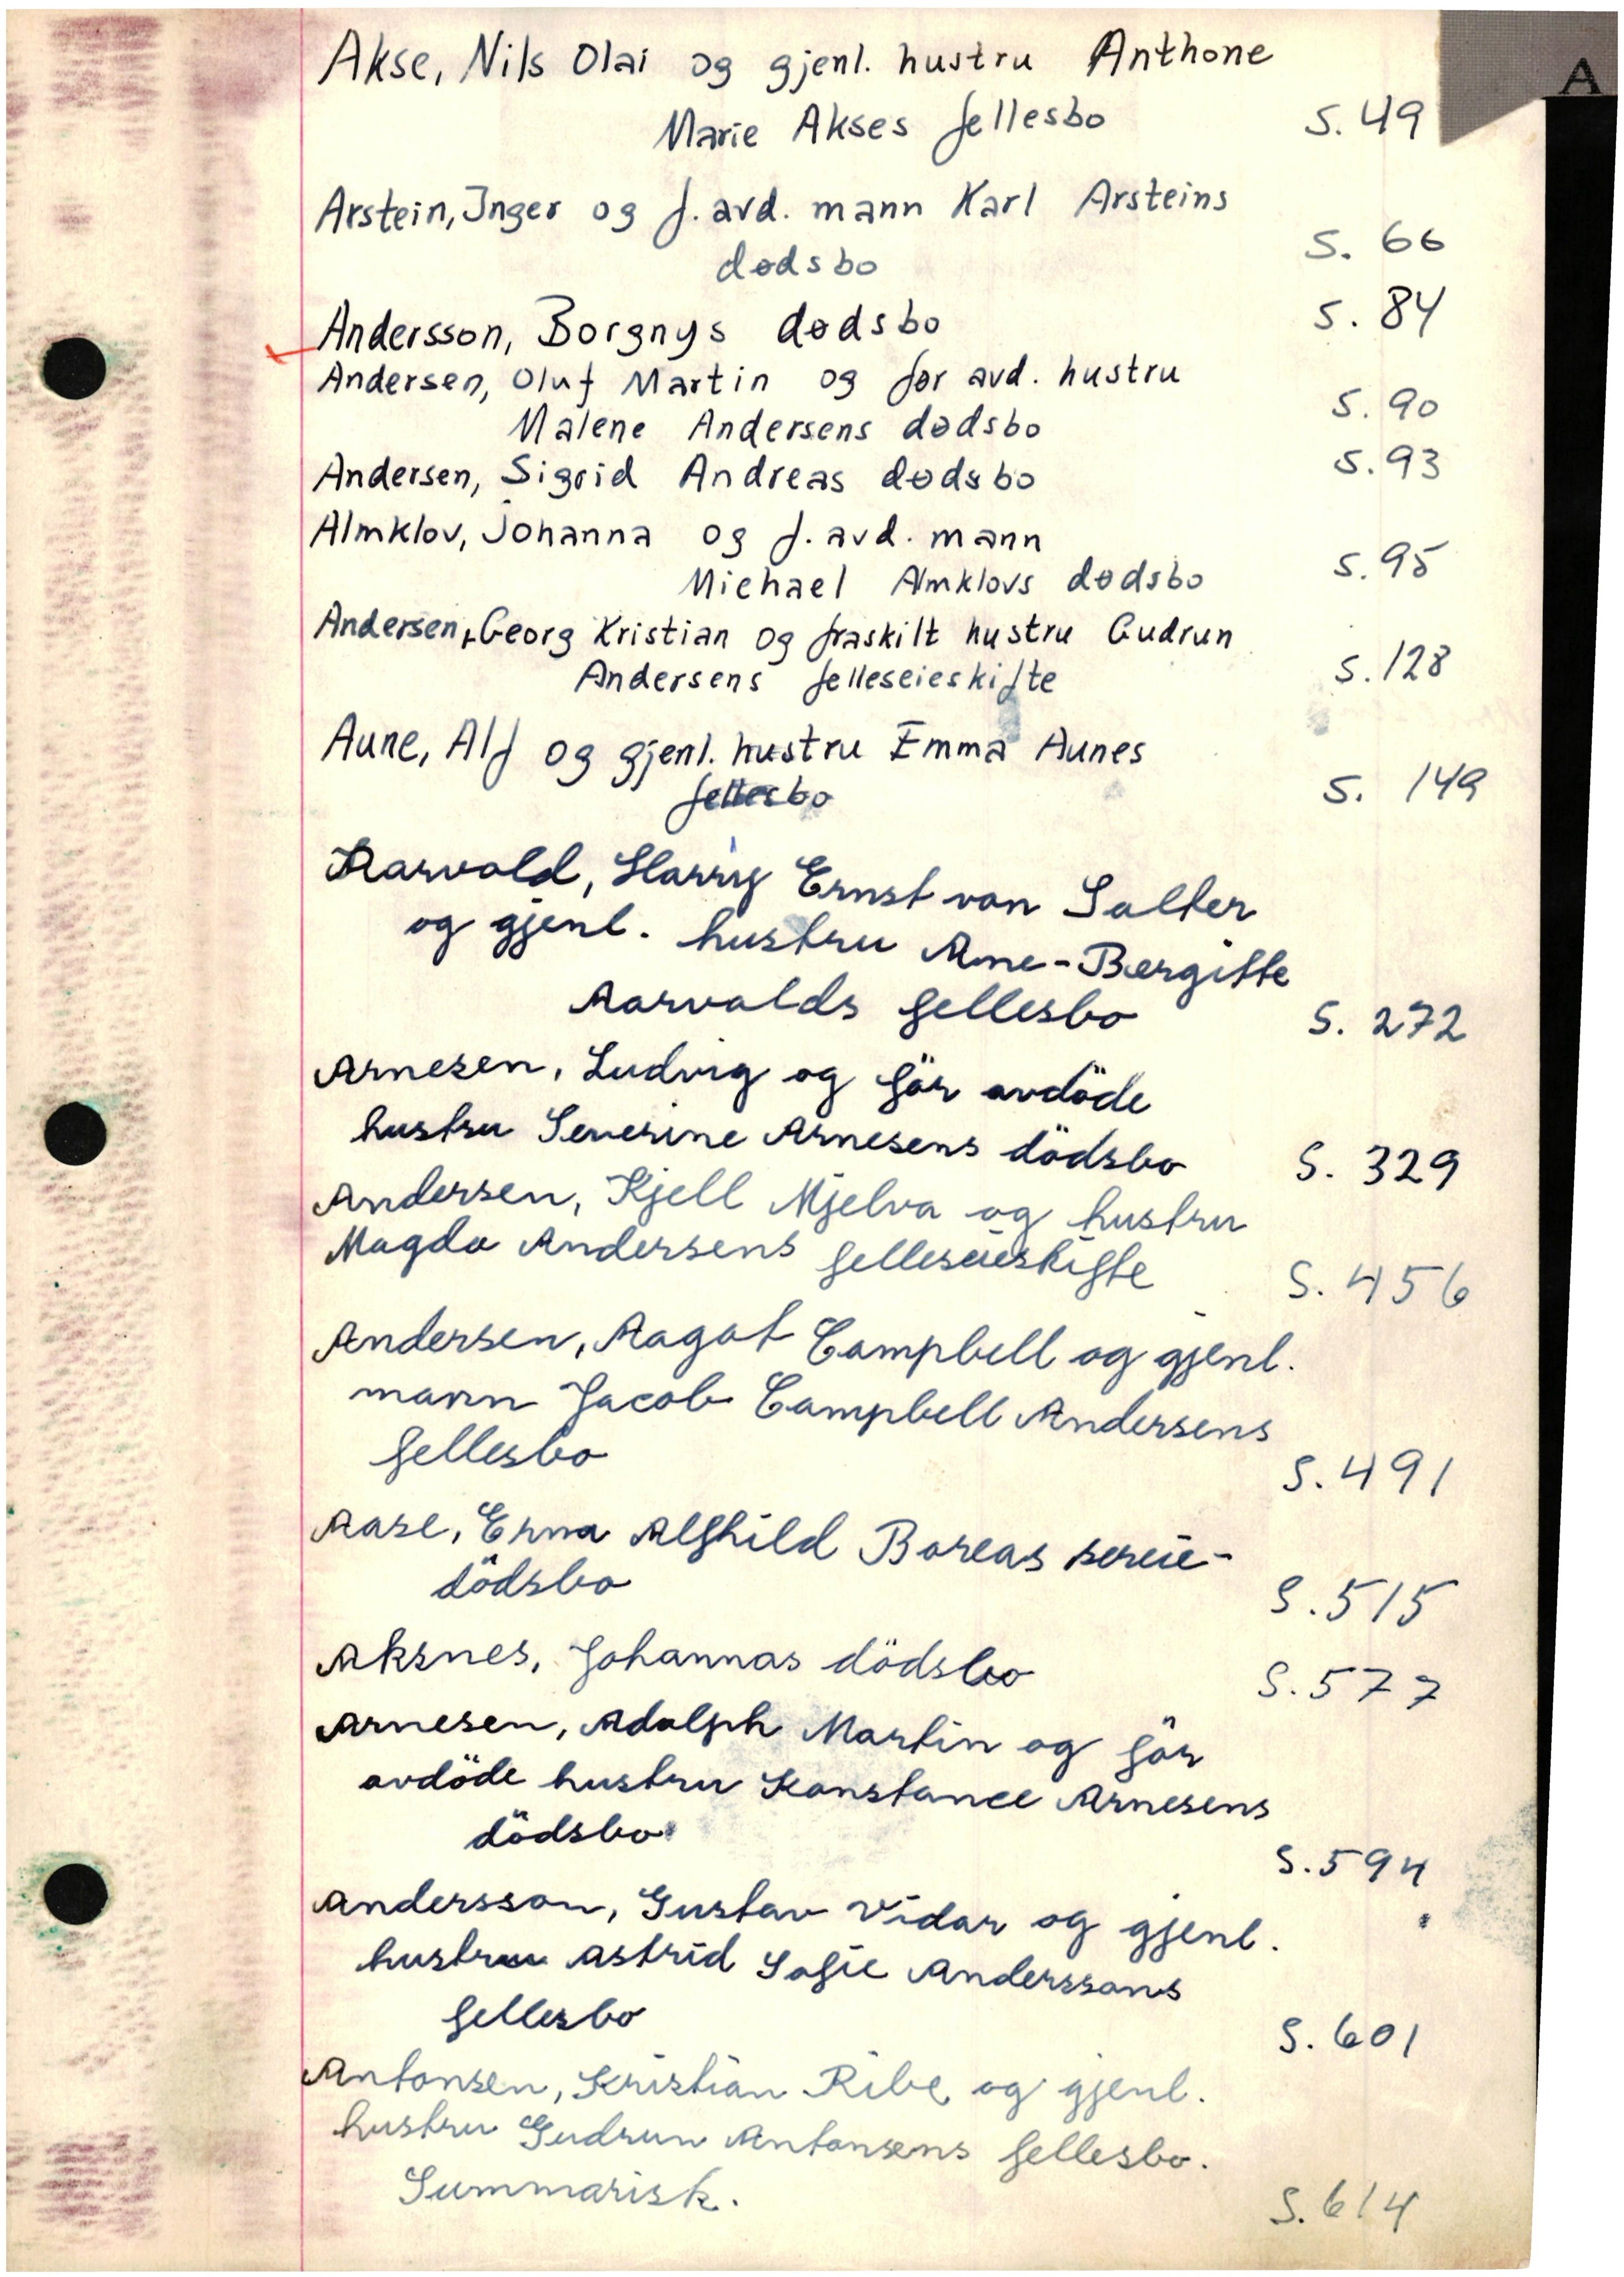 A
Akse, Nils Olai og gjenl. hustru Anthone
Marie Akses fellesbo S. 49
Arstein, Inger og f. avd. mann Karl Arsteins
dødsbo S. 66
Andersson, Borgnys dødsbo S. 84
Andersen, Oluf Martin og før avd. hustru
Malene Andersens dødsbo S. 90
Andersen, Sigrid Andreas dødsbo S. 93
Almklov, Johanna og f. avd. mann
Michael Almklovs dødsbo S. 95
Andersen, Georg Kristian og fraskilt hustru Gudrun
Andersens felleseieskifte S. 128
Aune, Alf og gjenl. hustru Emma Aunes
fellesbo S. 149
Aarvold, Harry Ernst von Salter
og gjenl. hustru Ane-Bergitte
Aarvolds fellesbo S. 272
Arnesen, Ludvig og för avdöde
hustru Severine Arnesens dödsbo S. 329
Andersen, Kjell Mjelva og hustru
Magda Andersens felleseieskifte S. 456
Andersen, Aagot Campbell og gjenl.
mann Jacob Campbell Andersens
fellesbo S. 491
Aase, Erna Alfhild Boreas særeie-
dödsbo S. 515
Aksnes, Johannas dödsbo S. 577
Arnesen, Adolph Martin og för
avdöde hustru Konstance Arnesens
dödsbo S. 594
Andersson, Gustav Vidar og gjenl.
hustru Astrid Sofie Anderssons
fellesbo S. 601
Antonsen, Kristian Ribe og gjenl.
hustru Gudrun Antonsens fellesbo.
Summarisk. S. 614